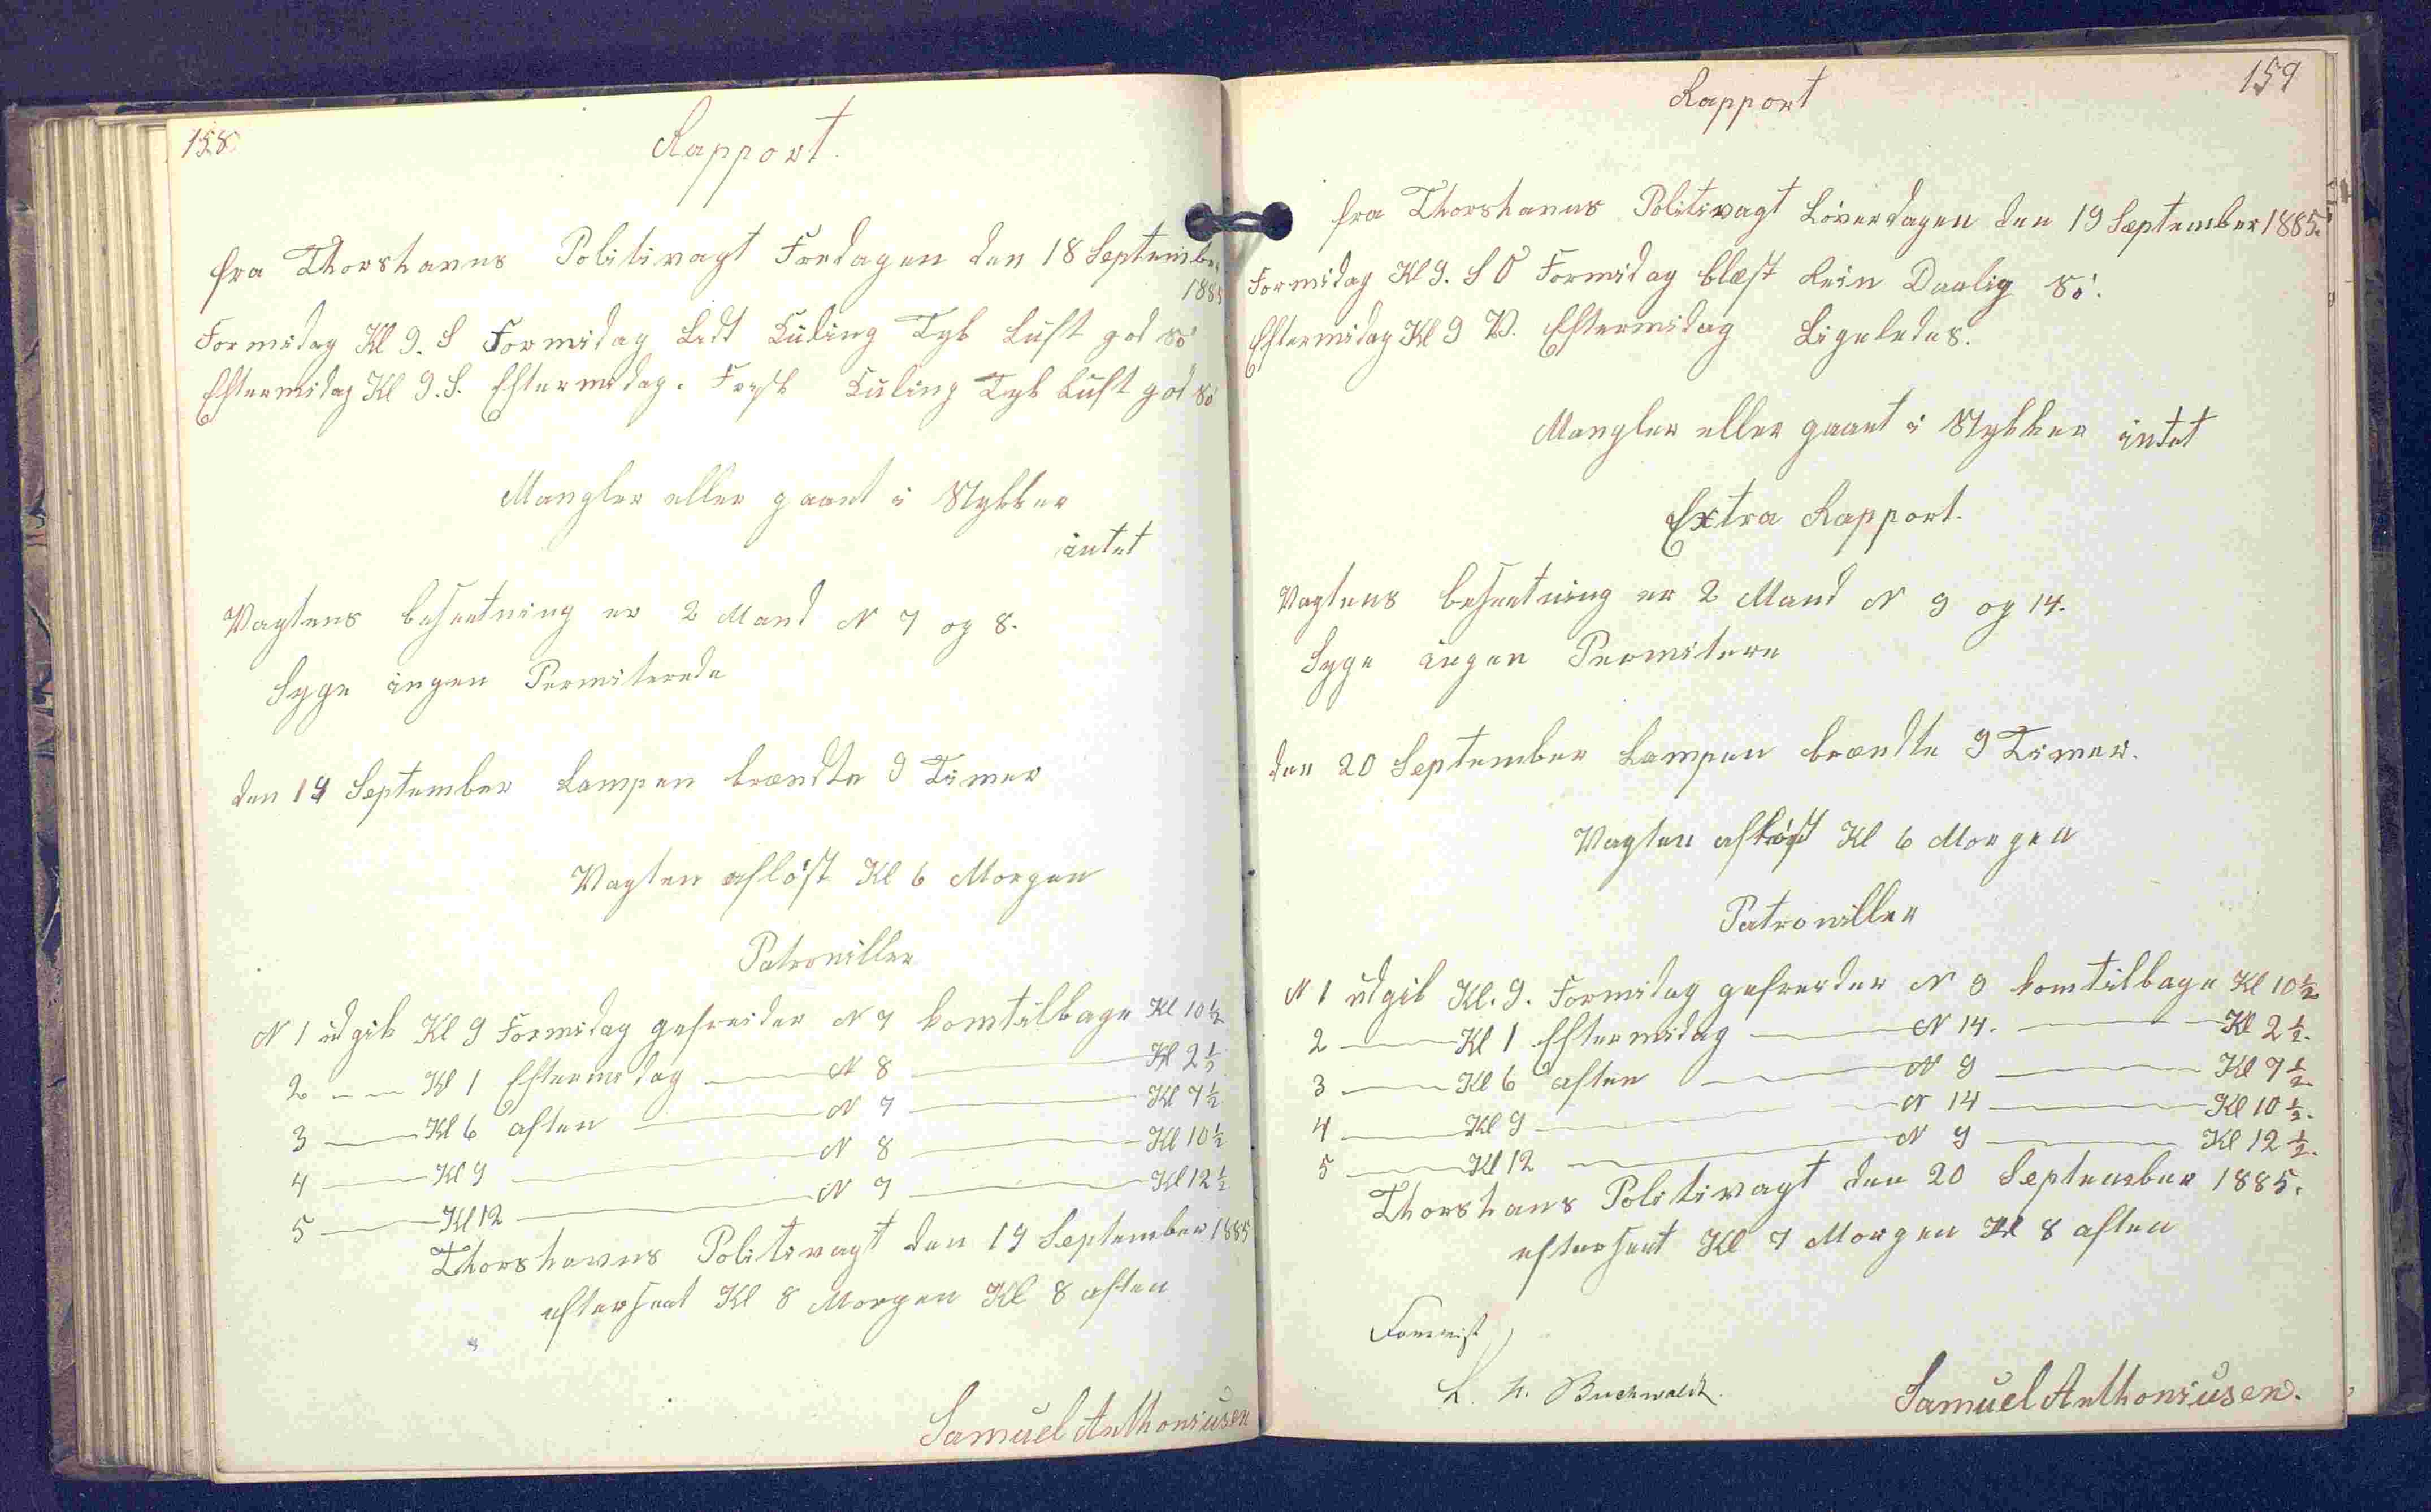 158
Rapport.
fra Thorshavns Politivagt Fredagen den 18 Septembe.
1885
Formidag Kl 9. S Formidag Lidt Kuling Tyk Luft god Sö
Eftermidag Kl 9. S. Eftermidag. Frisk Kuling Tyk Luft god Sö
Mangler eller gaaet i Stykker
intet
Vagtens besætning er 2 Mand N 7 og 8.
Syge ingen Permiterede
den 19 September Lampen brændte 9 Timer
Vagten aflöst Kl 6 Morgen
Patrouiller
N 1 udgik Kl 9 Formidag gefreider N 7 komtilbage Kl 10½
2 — — Kl 1 Eftermidag — N 8 — Kl 2½
3 — Kl 6 aften — N 7 — Kl 7½
4 — Kl 9 — N 8 — Kl 10½
5 — Kl 12 — N 7 — Kl 12½
Thorshavns Politivagt den 19 September 1885
efterseet Kl 8 Morgen Kl 8 aften
Samuel Anthoniusen
159
Rapport
fra Thorshavns Politivagt Löverdagen den 19 September 1885.
Formidag Kl 9. S O Formidag blæst Rein Daalig Sö.
Eftermidag Kl 9 V. Eftermidag Ligeledes.
Mangler eller gaaet i Stykker intet
Extra Rapport.
Vagtens besætning er 2 Mand N 9 og 14.
Syge ingen Permitere
den 20 September Lampen brændte 9 Timer.
Vagten aflöst Kl 6 Morgen
Patrouiller
N 1 udgik Kl. 9. Formidag gefreider N 9 komtilbage Kl 10½
2 — Kl 1 Eftermidag — N 14. — Kl 2½.
3 — Kl 6 aften — N 9 — Kl 7½
4 — Kl 9 — N 14 — Kl 10½.
5 — Kl 12 — N 9 — Kl 12½.
Thorshans Politivagt den 20 September 1885.
efterseet Kl 7 Morgen Kl 8 aften
Forevist
Buchwaldt.
Samuel Anthoniusen.